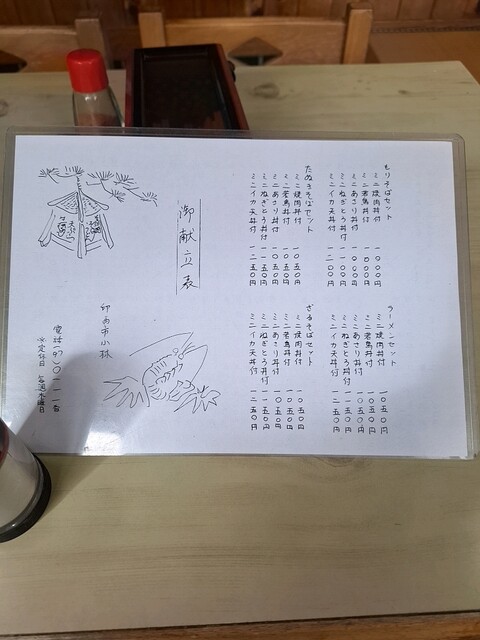 もりそばセット
ミニ焼肉丼付 一〇〇〇円
ミニ若鳥丼付 一〇〇〇円
ミニあさり丼付 一〇〇〇円
ミニねぎとろ丼付 一一〇〇円
ミニイカ天丼付 一二〇〇円
ラーメンセット
ミニ焼肉丼付 一〇五〇円
ミニ若鳥丼付 一〇五〇円
ミニあさり丼付 一〇五〇円
ミニねぎとろ丼付 一一五〇円
ミニイカ天丼付 一二五〇円
たぬきそばセット
ミニ焼肉丼付 一〇五〇円
ミニ若鳥丼付 一〇五〇円
ミニあさり丼付 一〇五〇円
ミニねぎとろ丼付 一一五〇円
ミニイカ天丼付 一二五〇円
ざるそばセット
ミニ焼肉丼付 一〇五〇円
ミニ若鳥丼付 一〇五〇円
ミニあさり丼付 一〇五〇円
ミニねぎとろ丼付 一一五〇円
ミニイカ天丼付 一二五〇円
御献立表
印西市小林
電話(97)〇一一一番
※定休日 毎週木曜日